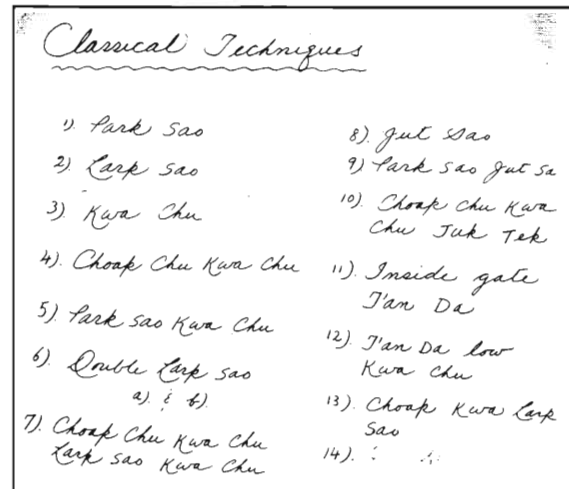 Classical Techniques
1). Park Sao
2). Larp Sao
3). Kwa Chu
4). Choap Chu Kwa Chu
5). Park Sao Kwa Chu
6). Double Larp Sao
a). & b).
7). Choap Chu Kwa Chu
Larp Sao Kwa Chu
8). Jut Sao
9) Park Sao Jut Sa
10). Choap Chu Kwa
Chu Juk Tek
11). Inside gate
T'an Da
12). T'an Da low
Kwa Chu
13). Choap Kwa Larp
Sao
14).